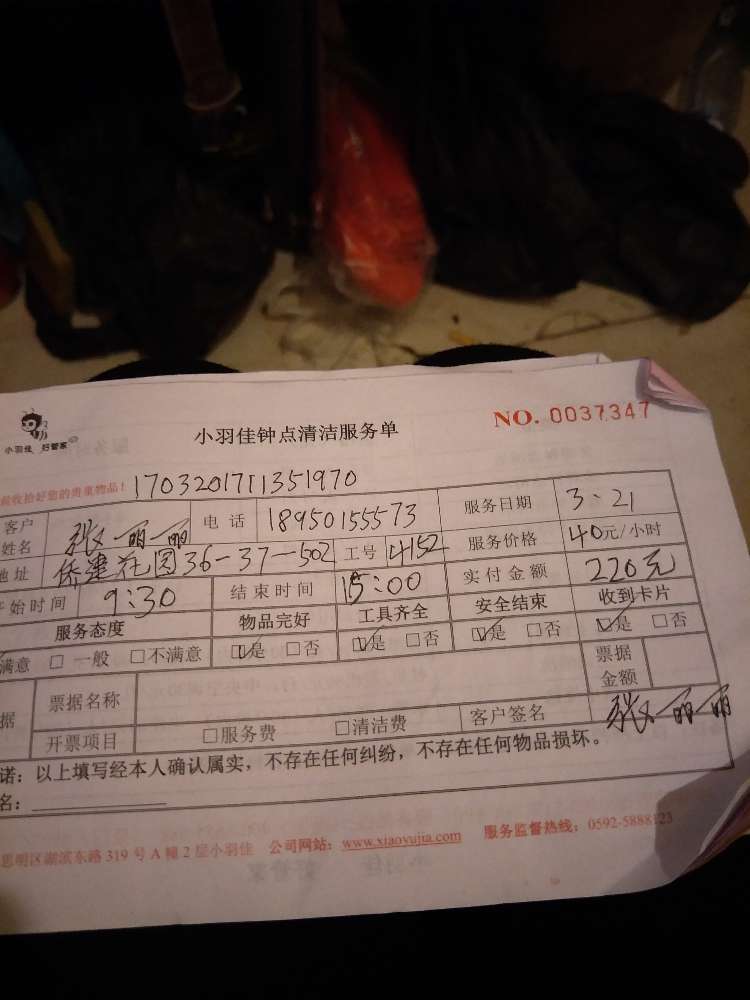 小羽佳 好管家
小羽佳钟点清洁服务单
NO. 0037347
收拾好您的贵重物品！1703201711351970
客户姓名 张丽丽 电话 18950155573 服务日期 3、21
地址 侨建花园36-37-502 工号 4152 服务价格 40元/小时
开始时间 9:30 结束时间 15:00 实付金额 220元
服务态度 物品完好 工具齐全 安全结束 收到卡片
满意 □ 一般 □不满意 ☑是 □否 ☑是 □否 ☑是 □否 ☑是 □否
据 票据名称 票据金额
开票项目 □服务费 □清洁费 客户签名 张丽丽
诺：以上填写经本人确认属实，不存在任何纠纷，不存在任何物品损坏。
名：
思明区湖滨东路 319 号 A 幢 2 层小羽佳 公司网站：www.xiaoyujia.com 服务监督热线：0592-5888123